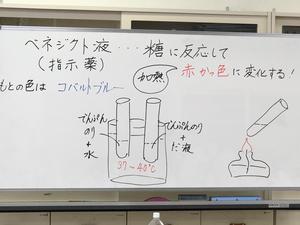 ベネジクト液・・・糖に反応して
(指示薬)
加熱
赤かっ色に変化する!
もとの色は コバルトブルー
でんぷん
のり
+
水
でんぷんのり
+
だ液
37~40℃